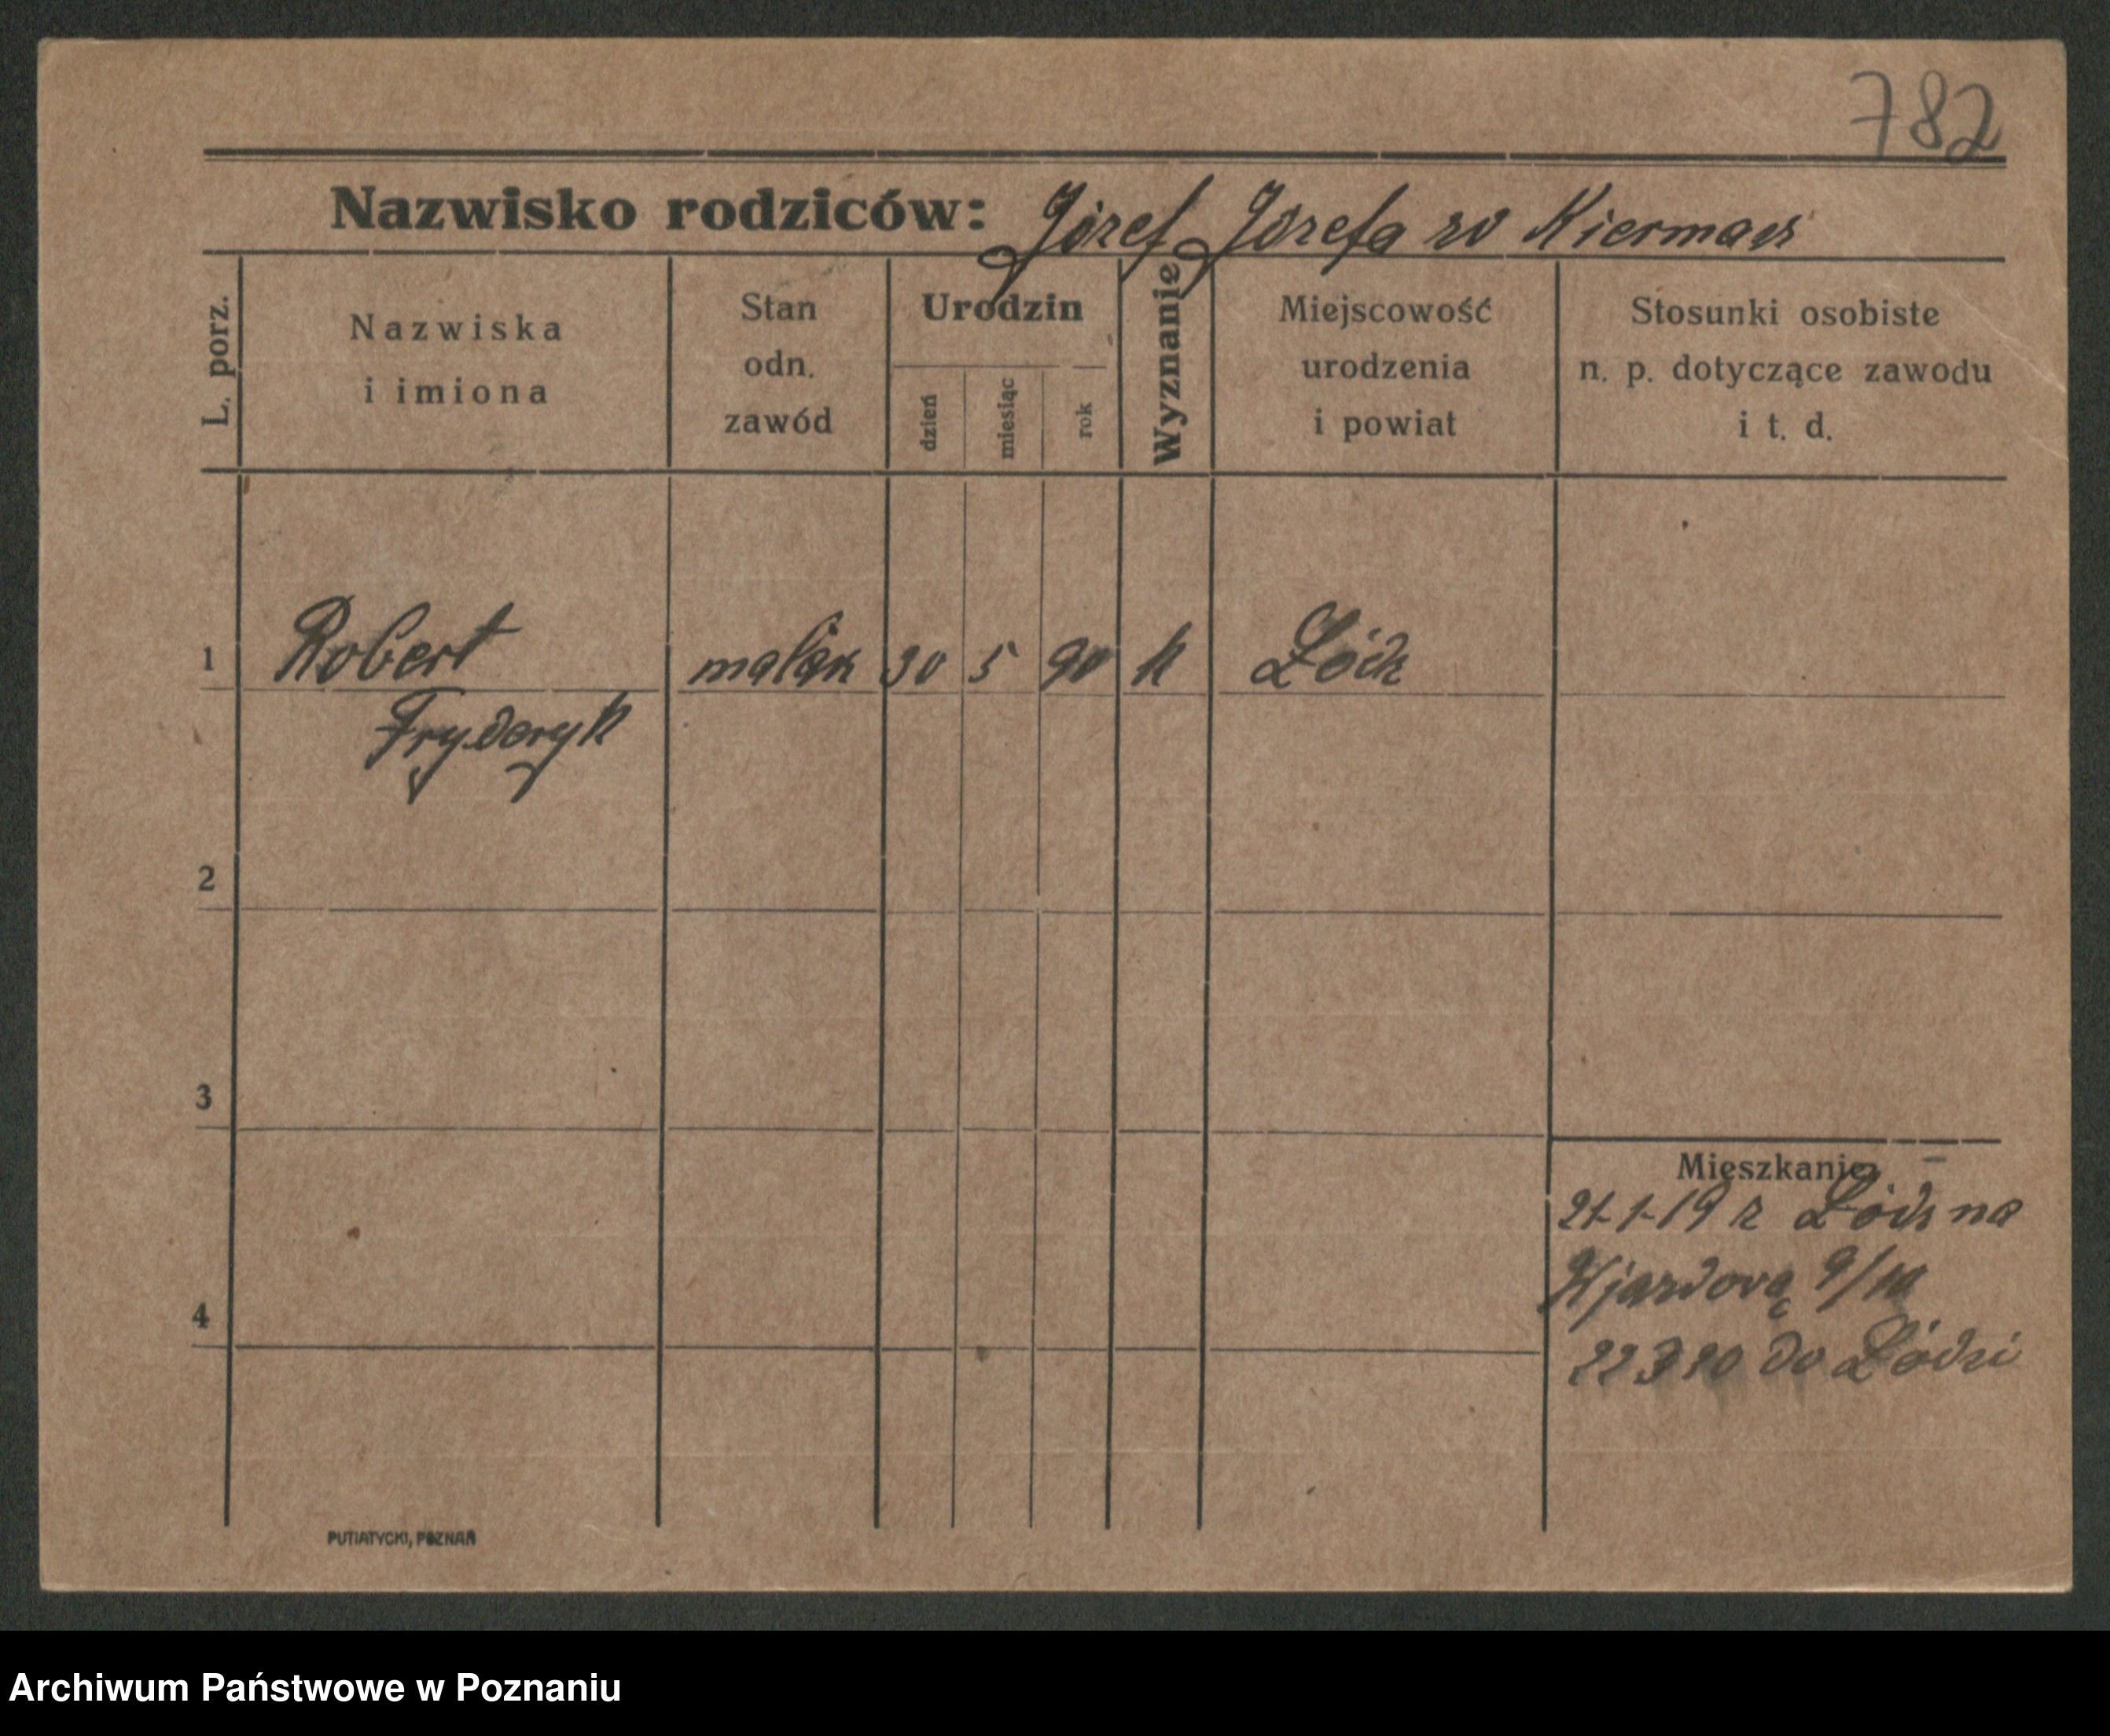 782
Nazwisko rodziców: Józef Józefa zd Kiermas
L. porz.
Nazwiska
i imiona
Stan
odn.
zawód
Urodzin
dzień
miesiąc
rok
Wyznanie
Miejscowość
urodzenia
i powiat
Stosunki osobiste
n. p. dotyczące zawodu
i t. d.
1 Robert malarz 30 5 90 k Łódź
Fryderyk
2
3
4
Mieszkanie
21-1-19 z Łódź na
9/10
22 3 20 do Łódzi
PUTIATYCKI, POZNAŃ
Archiwum Państwowe w Poznaniu